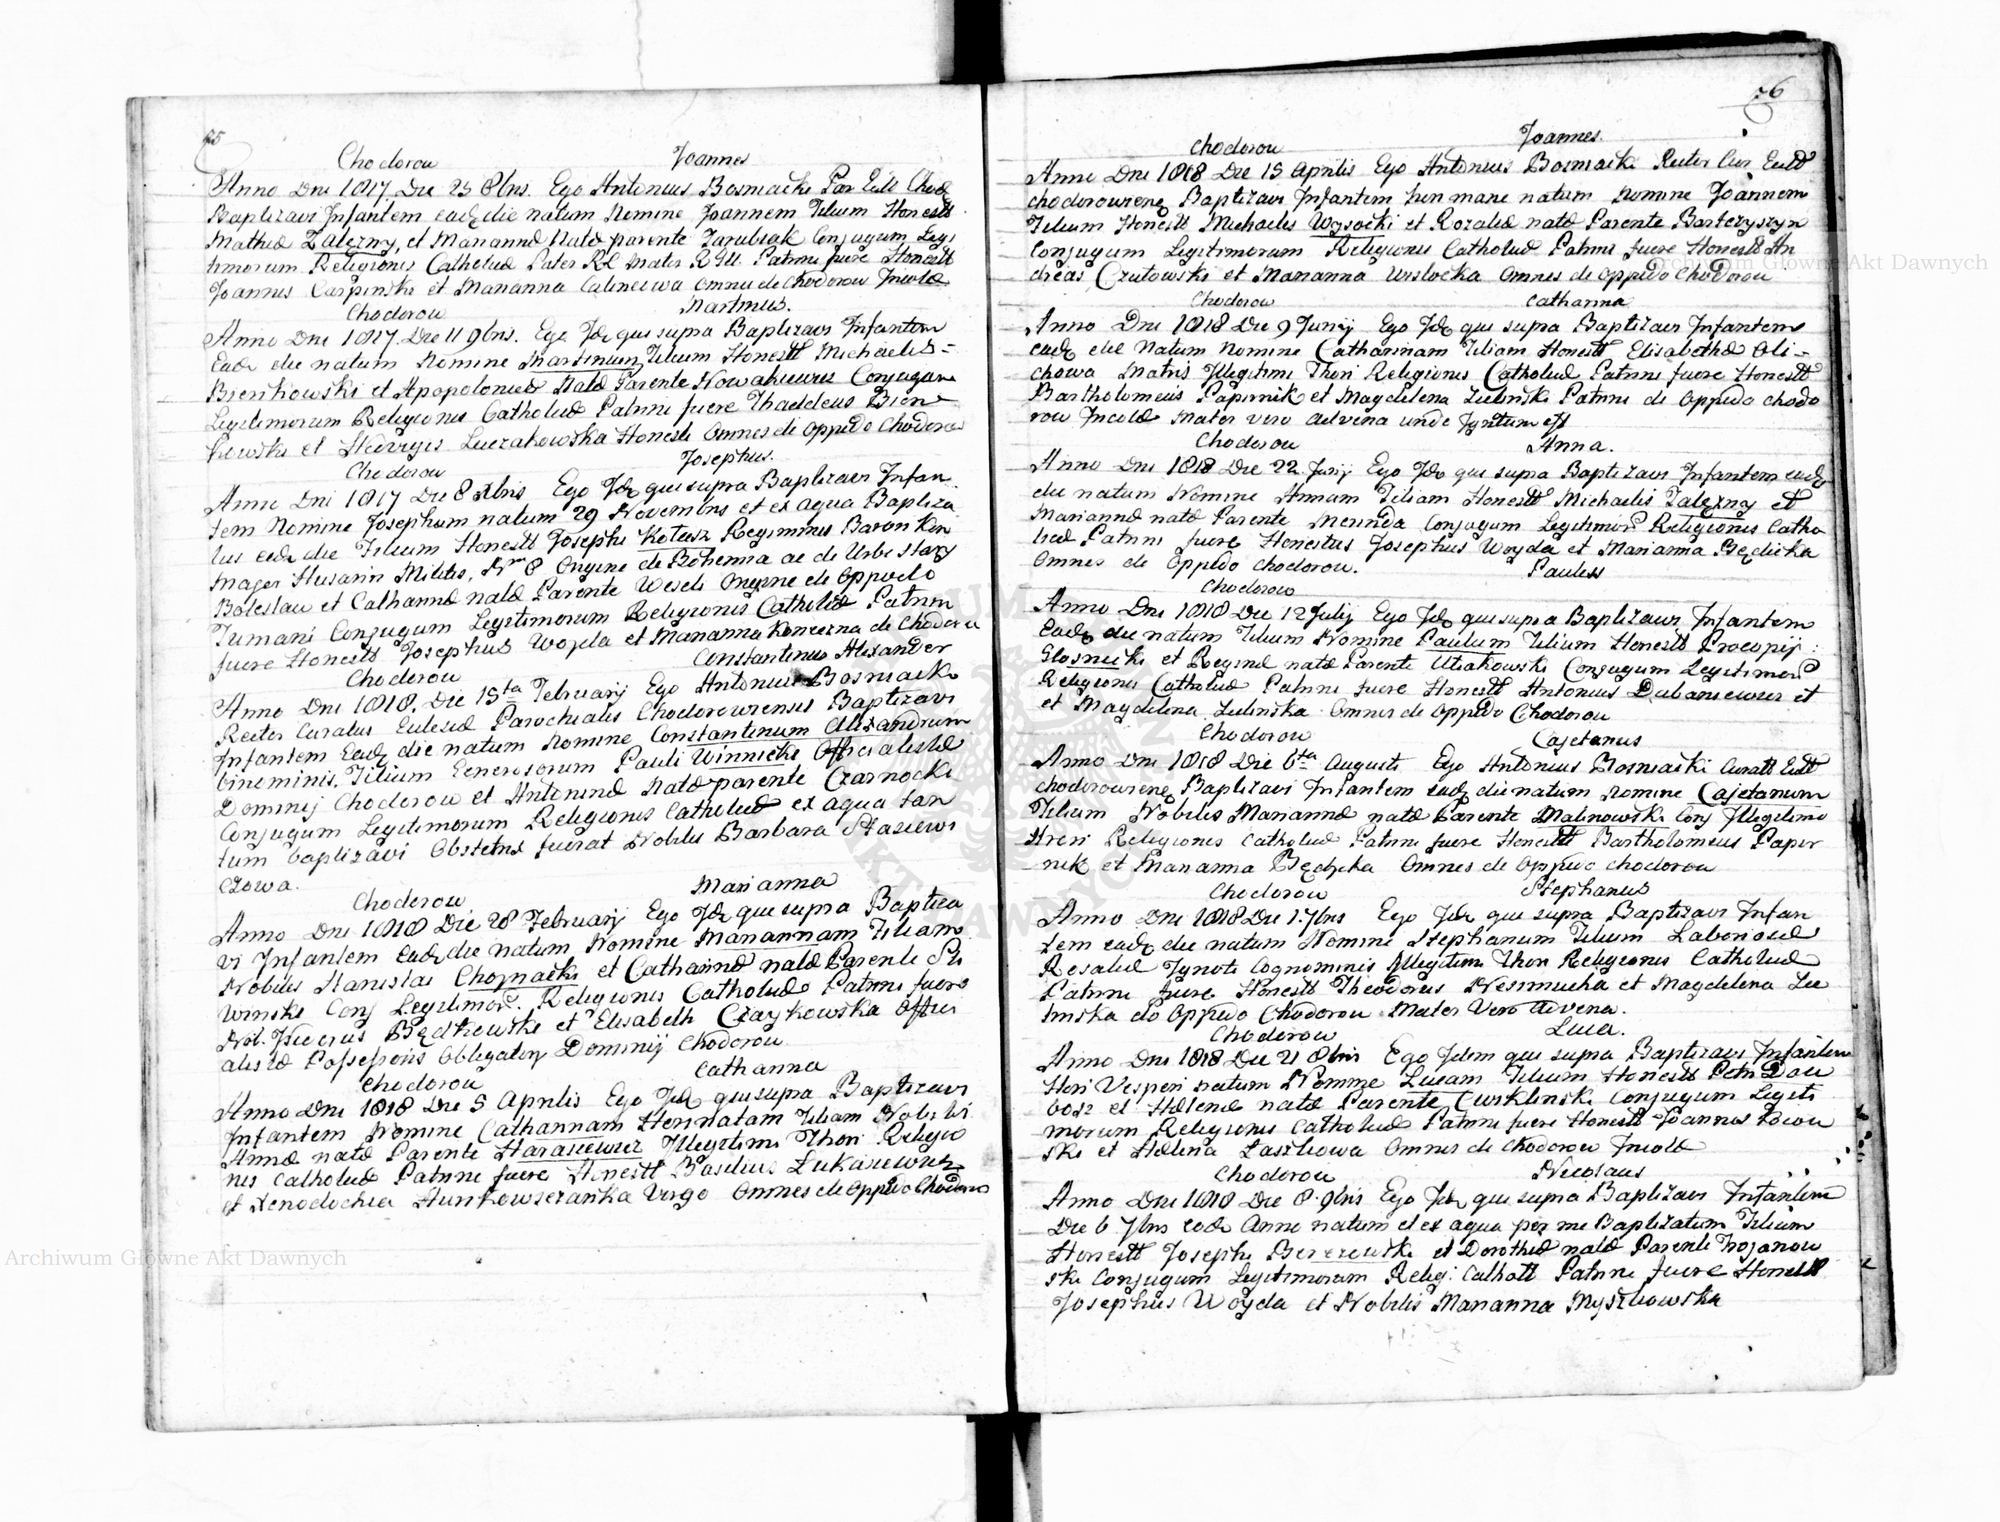 75
Chodorow Joannes
Anno Dni 1817. Die 23 8bris. Ego Antonius Bosniacki Par Eccl Chod
Baptizavi Infantem eadq die natum Nomine Joannem Filium Honestt
Mathiæ Zalezny, et Mariannæ Natæ parente Jarubiak Conjugum Legi
timorum Religionis Catholicæ Pater RL Mater RGU. Patrini fuere Honestt
Joannes Carpinski et Marianna Calinciwa omnes de Chodorow Incolæ
Chodorow Martinus.
Anno Dni 1817. Die 11 9bris. Ego Idq qui supra Baptizavi Infantem
Eadq die natum Nomine Martinum Filium Honestt Michaelis =
Bienkowski et Apopoloniæ Natæ Parente Nowakiewicz Conjugum
Legitimorum Religionis Catholicæ Patrini fuere Thaddeus Bien=
kowski et Hedvigis Luczakowska Honesti Omnes de Oppido Chodorow
Chodorow Josephus.
Anno Dni 1817 Die 8 Xbris Ego Idq qui supra Baptizavi Infan
tem Nomine Josephum natum 29 Novembris et ex aqua Baptiza
tus eadq die Filium Honestt Josephi Kotasz Regiminis Baron Ken
mager Husarin Militis, Nro 8 Origine de Bohemia ac de Urbe Stary
Boleslau et Catharinæ natæ Parente Wesch Origine de Oppido
Tumani Conjugum Legitimorum Religionis Catholicæ Patrini
fuere Honestt Josephus Woyda et Marianna Koncerna de Chodorow
Chodorow Constantinus Alexander
Anno Dni 1818. Die 15ta February Ego Antonius Bosniacki
Rector Curatus Ecclesiæ Parochialis Chodorowiensis Baptizavi
Infantem Eadq die natum Nomine Constantinum Alexandrum
binominis, Filium Generosorum Pauli Winnicki Officialistæ
Dominij Chodorow et Antoninæ Natæ parente Czarnocki
Conjugum Legitimorum Religionis Catholicæ ex aqua tan
tum baptizavi Obstetrix fuerat Nobilis Barbara Stasiewi
czowa.
Chodorow Marianna
Anno Dni 1818 Die 28 February Ego Idq qui supra Baptiza
vi Infantem Eadq die natum Nomine Mariannam Filiam
Nobilis Stanislai Choynacki et Catharinæ natæ Parente Sli
winski Conj Legitimor. Religionis Catholicæ Patrini fuere
Nob. Będkowski et Elisabeth Czaykowska Offici
alistæ Possessoris Obligatory Dominij Chodorow
Chodorow Catharina
Anno Dni 1818 Die 5 Aprilis Ego Idq qui supra Baptizavi
Infantem Nomine Catharinam Heri natam Filiam Nobilis
Annæ natæ Parente Harasiewicz Illegitimi Thori Religio
nis Catholicæ Patrini fuere Honestt Basilius Lukasiewicz
et Xenodochia Virgo Omnes de Oppido Chodorow
76
Chodorow Joannes.
Anno Dni 1818 Die 15 Aprilis Ego Antonius Bosniacki Rector Cur Eccl
chodorowieng Baptizavi Infantem hun mane natum Nomine Joannem
Filium Honestt Michaelis Wysocki et Rozaliæ natæ Parente Bartczyszyn
Conjugum Legitimorum Religionis Catholicæ Patrini fuere Honestt An
dreas Czulowski et Marianna Wislocka Omnes de Oppido Chodorow
Chodorow Catharina
Anno Dni 1818 Die 9 Junij Ego Idq qui supra Baptizavi Infantem
eadq die Natum Nomine Catharinam Filiam Honestt Elisabethæ Oli=
chowa Matris Illegitimi Thori Religionis Catholicæ Patrini fuere Honestt
Bartholomeus Papirnik et Magdelena Zielinski Patrini de Oppido Chodo
row Incolæ Mater vero advena unde Ignotum est
Chodorow Anna.
Anno Dni 1818 Die 22 Junij Ego Idq qui supra Baptizavi Infantem eadq
die natum Nomine Annam Filiam Honestt Michaelis Zalezny et
Mariannæ natæ Parente Merunda Conjugum Legitimor Religionis Catho
licæ Patrini fuere Honestus Josephus Woyda et Marianna Będzicka
Omnes de Oppido Chodorow.
Chodorow Paulus
Anno Dni 1818 Die 12 Julij Ego Idq qui supra Baptizavi Infantem
Eadq die natum Filium Nomine Paulum Filium Honestt Procopij
Glosnicki et Reginæ natæ Parente Uliakowski Conjugum Legitimor
Religionis Catholicæ Patrini fuere Honestt Antonius Dubaniewicz et
et Magdelena Zielinska Omnes de Oppido Chodorow
Chodorow Cajetanus
Anno Dni 1818 Die 6ta Augusti Ego Antonius Bosniacki Curatt Eccl
chodorowieng Baptizavi Infantem eadq die natum Nomine Cajetanum
Filium Nobilis Mariannæ natæ Parente Malinowski Conj Illegitimi
Thori Religionis Catholicæ Patrini fuere Honestt Bartholomeus Papir
nik et Marianna Będzicka Omnes de Oppido Chodorow
Chodorow Stephanus
Anno Dni 1818 Die 1. 7bris Ego Idq qui supra Baptizavi Infan
tem eadq die natum Nomine Stephanum Filium Laboriosæ
Rosaliæ Ignoti Cognominis Illegitimi Thori Religionis Catholicæ
Patrini fuere Honestt Theodorus Niesmucha et Magdelena Zie
linska de Oppido Chodorow Mater Vero Advena.
Chodorow Luca.
Anno Dni 1818 Die 21 8bris Ego Idem qui supra Baptizavi Infantem
Heri Vesperi natum Nomine Lucam Filium Honestt Petri Dou
bosz et Helenæ natæ Parente Cwiklinski Conjugum Legiti
morum Religionis Catholicæ Patrini fuere Honestt Joannes Bocow
ski et Helena Laszkowa Omnes de Chodorow Incolæ
Chodorow Nicolaus
Anno Dni 1818 Die 8. 9bris Ego Idq qui supra Baptizavi Infantem
Die 6 7bris eodq Anno natum et ex aqua per me Baptizatum Filium
Honestt Josephi Berezowski et Dorotheæ natæ Parente Trojanow
ski Conjugum Legitimorum Relig: Catholt Patrini fuere Honestt
Josephus Woyda et Nobilis Marianna Myszkowska
Archiwum Główne Akt Dawnych
Archiwum Główne Akt Dawnych